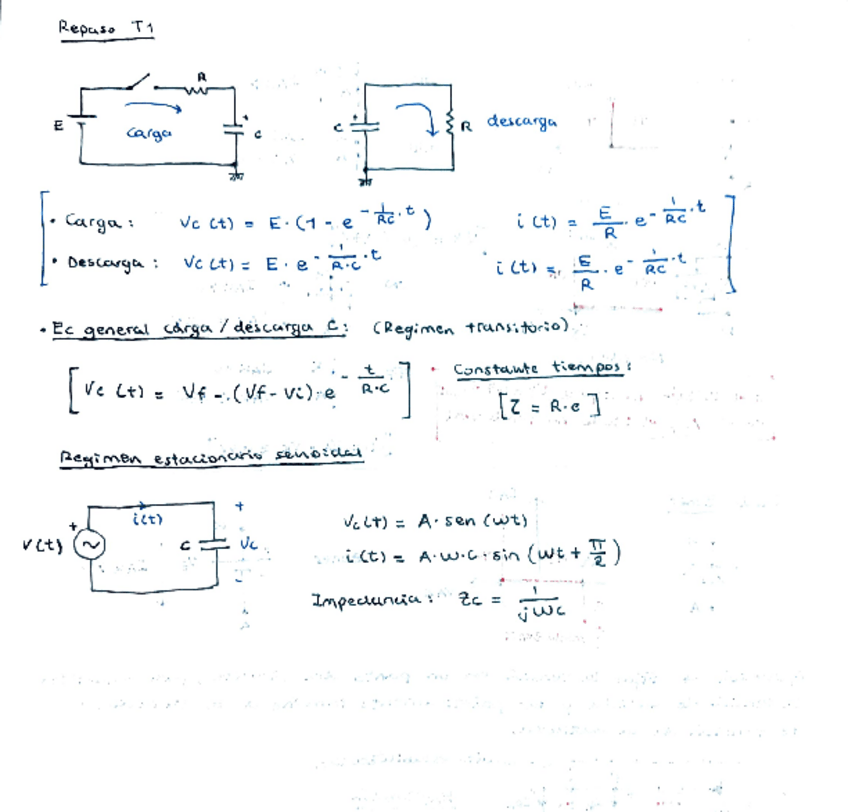 Repaso T1
R
E
carga
+
c
c
+
R
descarga
• Carga: Vc (t) = E · (1 - e^{-\frac{1}{RC}·t}) i (t) = \frac{E}{R} · e^{-\frac{1}{RC}·t}
• Descarga: Vc (t) = E · e^{-\frac{1}{R·C}·t} i (t) = \frac{E}{R} · e^{-\frac{1}{RC}·t}
• Ec general carga / descarga C: (Regimen transitorio)
[Vc (t) = Vf - (Vf - Vi) · e^{-\frac{t}{R·C}}] Constante tiempos:
[τ = R·c]
Regimen estacionario senoidal
+
i(t)
+
V(t)
~
c
Vc
-
Vc(t) = A · sen (wt)
i(t) = A·w·c · sin (wt + \frac{π}{2})
Impedancia: Zc = \frac{1}{jwc}